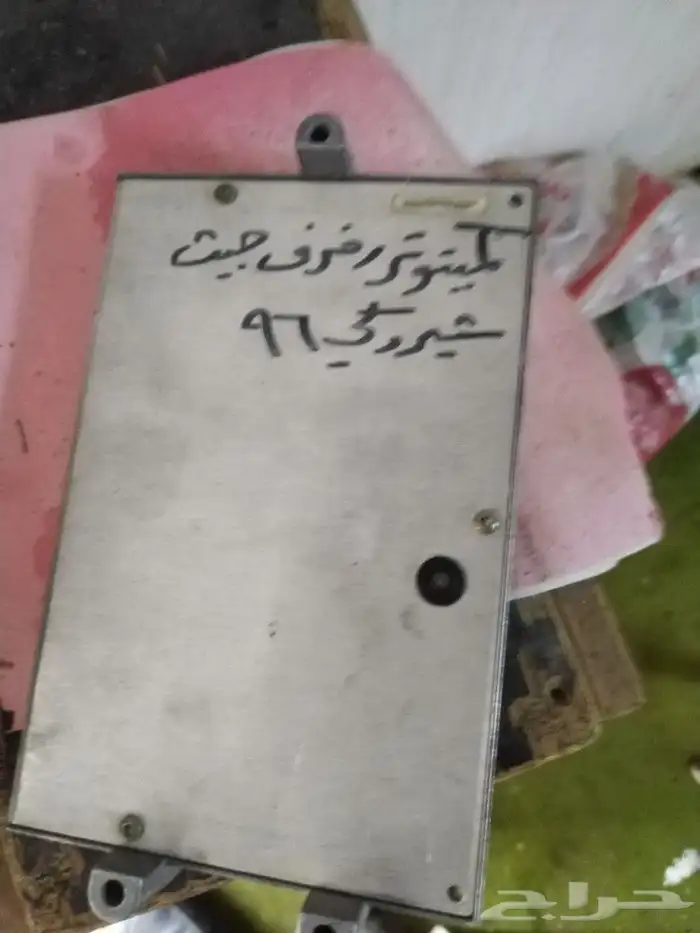 كمبيوتر رفرف جيت
شيروكي ٩٦
حراج